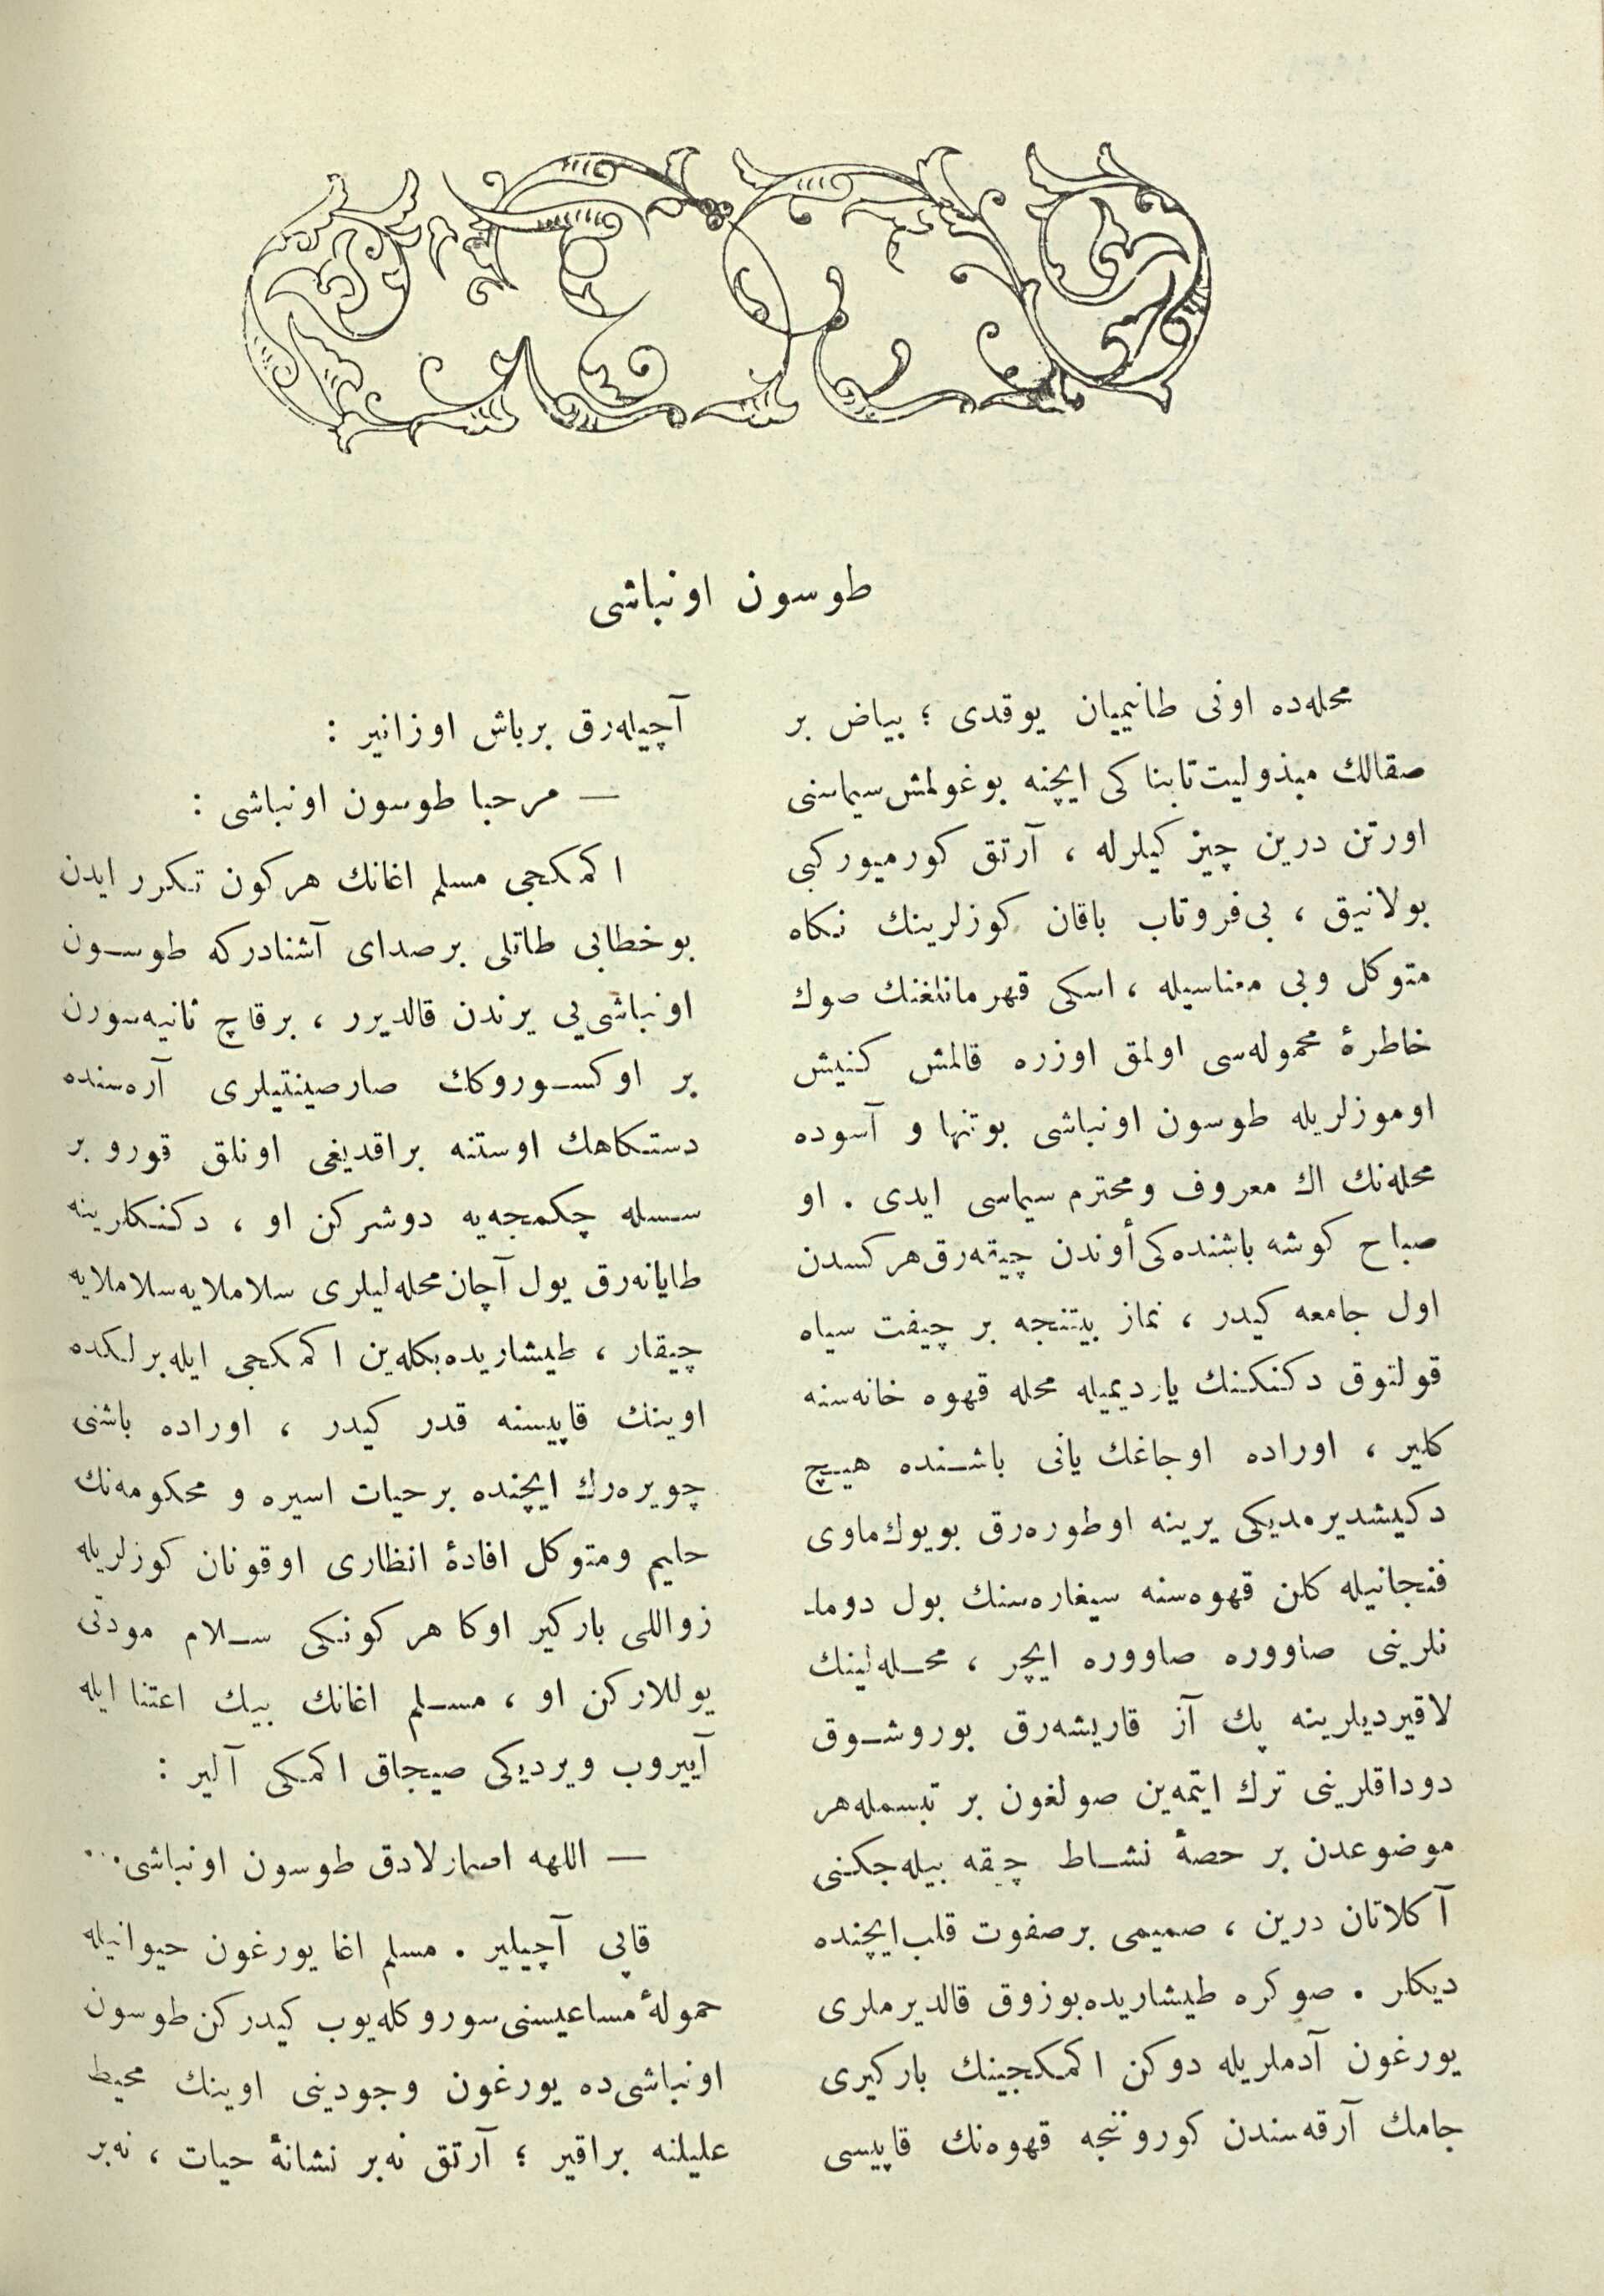 طوسون اونباشی
محله‌ده اونی طانیمیان یوقدی ؛ بیاض بر
صقالك مبذولیت تابناكی ایچنه بوغولمش سیماسنی
اورتن درین چیزكیلرله ، آرتق كورمیور كبی
بولانیق ، بی‌فروتاب باقان كوزلرینك نكاه
متوكل وبی معناسیله ، اسكی قهرمانلغنك صوك
خاطرۀ محموله‌سی اولمق اوزره قالمش كنیش
اوموزلریله طوسون اونباشی بوتنها و آسوده
محله‌نك اك معروف ومحترم سیماسی ایدی . او
صباح كوشه باشنده‌كی أوندن چیقه‌رق هركسدن
اول جامعه كیدر ، نماز بیتنجه بر چیفت سیاه
قولتوق دكنكنك یاردیمیله محله قهوه خانه‌سنه
كلیر ، اوراده اوجاغك یانی باشنده هیچ
دكیشدیرمدیكی یرینه اوطوره‌رق بویوك ماوی
فنجانیله كلن قهوه‌سنه سیغاره‌سنك بول دوما‌ـ
نلرینی صاووره صاووره ایچر ، محله‌لینك
لاقیردیلرینه پك آز قاریشه‌رق بوروشوق
دوداقلرینی ترك ایتمه‌ین صولغون بر تبسمله هر
موضوعدن بر حصۀ نشاط چیقه بیله‌جكنی
آكلاتان درین ، صمیمی برصفوت قلب ایچنده
دیكلر . صوكره طیشاریده بوزوق قالدیرملری
یورغون آدملریله دوكن اكمكجینك باركیری
جامك آرقه‌سندن كورونجه قهوه‌نك قاپیسی
آچیله‌رق برباش اوزانیر :
— مرحبا طوسون اونباشی :
اكمكجی مسلم اغانك هركون تكرر ایدن
بوخطابی طاتلی برصدای آشنادركه طوسون
اونباشی‌یی یرندن قالدیرر ، برقاچ ثانیه‌سورن
بر اوكسوروكك صارصینتیلری آره‌سنده
دستكاهك اوستنه براقدیغی اونلق قورو بر
سسله چكمجه‌یه دوشركن او ، دكنكلرینه
طایانه‌رق یول آچان محله‌لیلری سلاملایه سلاملایه
چیقار ، طیشاریده بكله‌ین اكمكجی ایله برلكده
اوینك قاپیسنه قدر كیدر ، اوراده باشنی
چویره‌رك ایچنده برحیات اسیره و محكومه‌نك
حلیم ومتوكل افادۀ انظاری اوقونان كوزلریله
زواللی باركیر اوكا هر كونكی سلام مودتی
یوللاركن او ، مسلم اغانك بیك اعتنا ایله
آییروب ویردیكی صیجاق اكمكی آلیر :
— اللهه اصمارلادق طوسون اونباشی...
قاپی آچیلیر . مسلم اغا یورغون حیوانیله
حمولۀ مساعیسنی سوروكله‌یوب كیدركن طوسون
اونباشی‌ده یورغون وجودینی اوینك محیط
علیلنه براقیر ؛ آرتق نه‌بر نشانۀ حیات ، نه‌بر